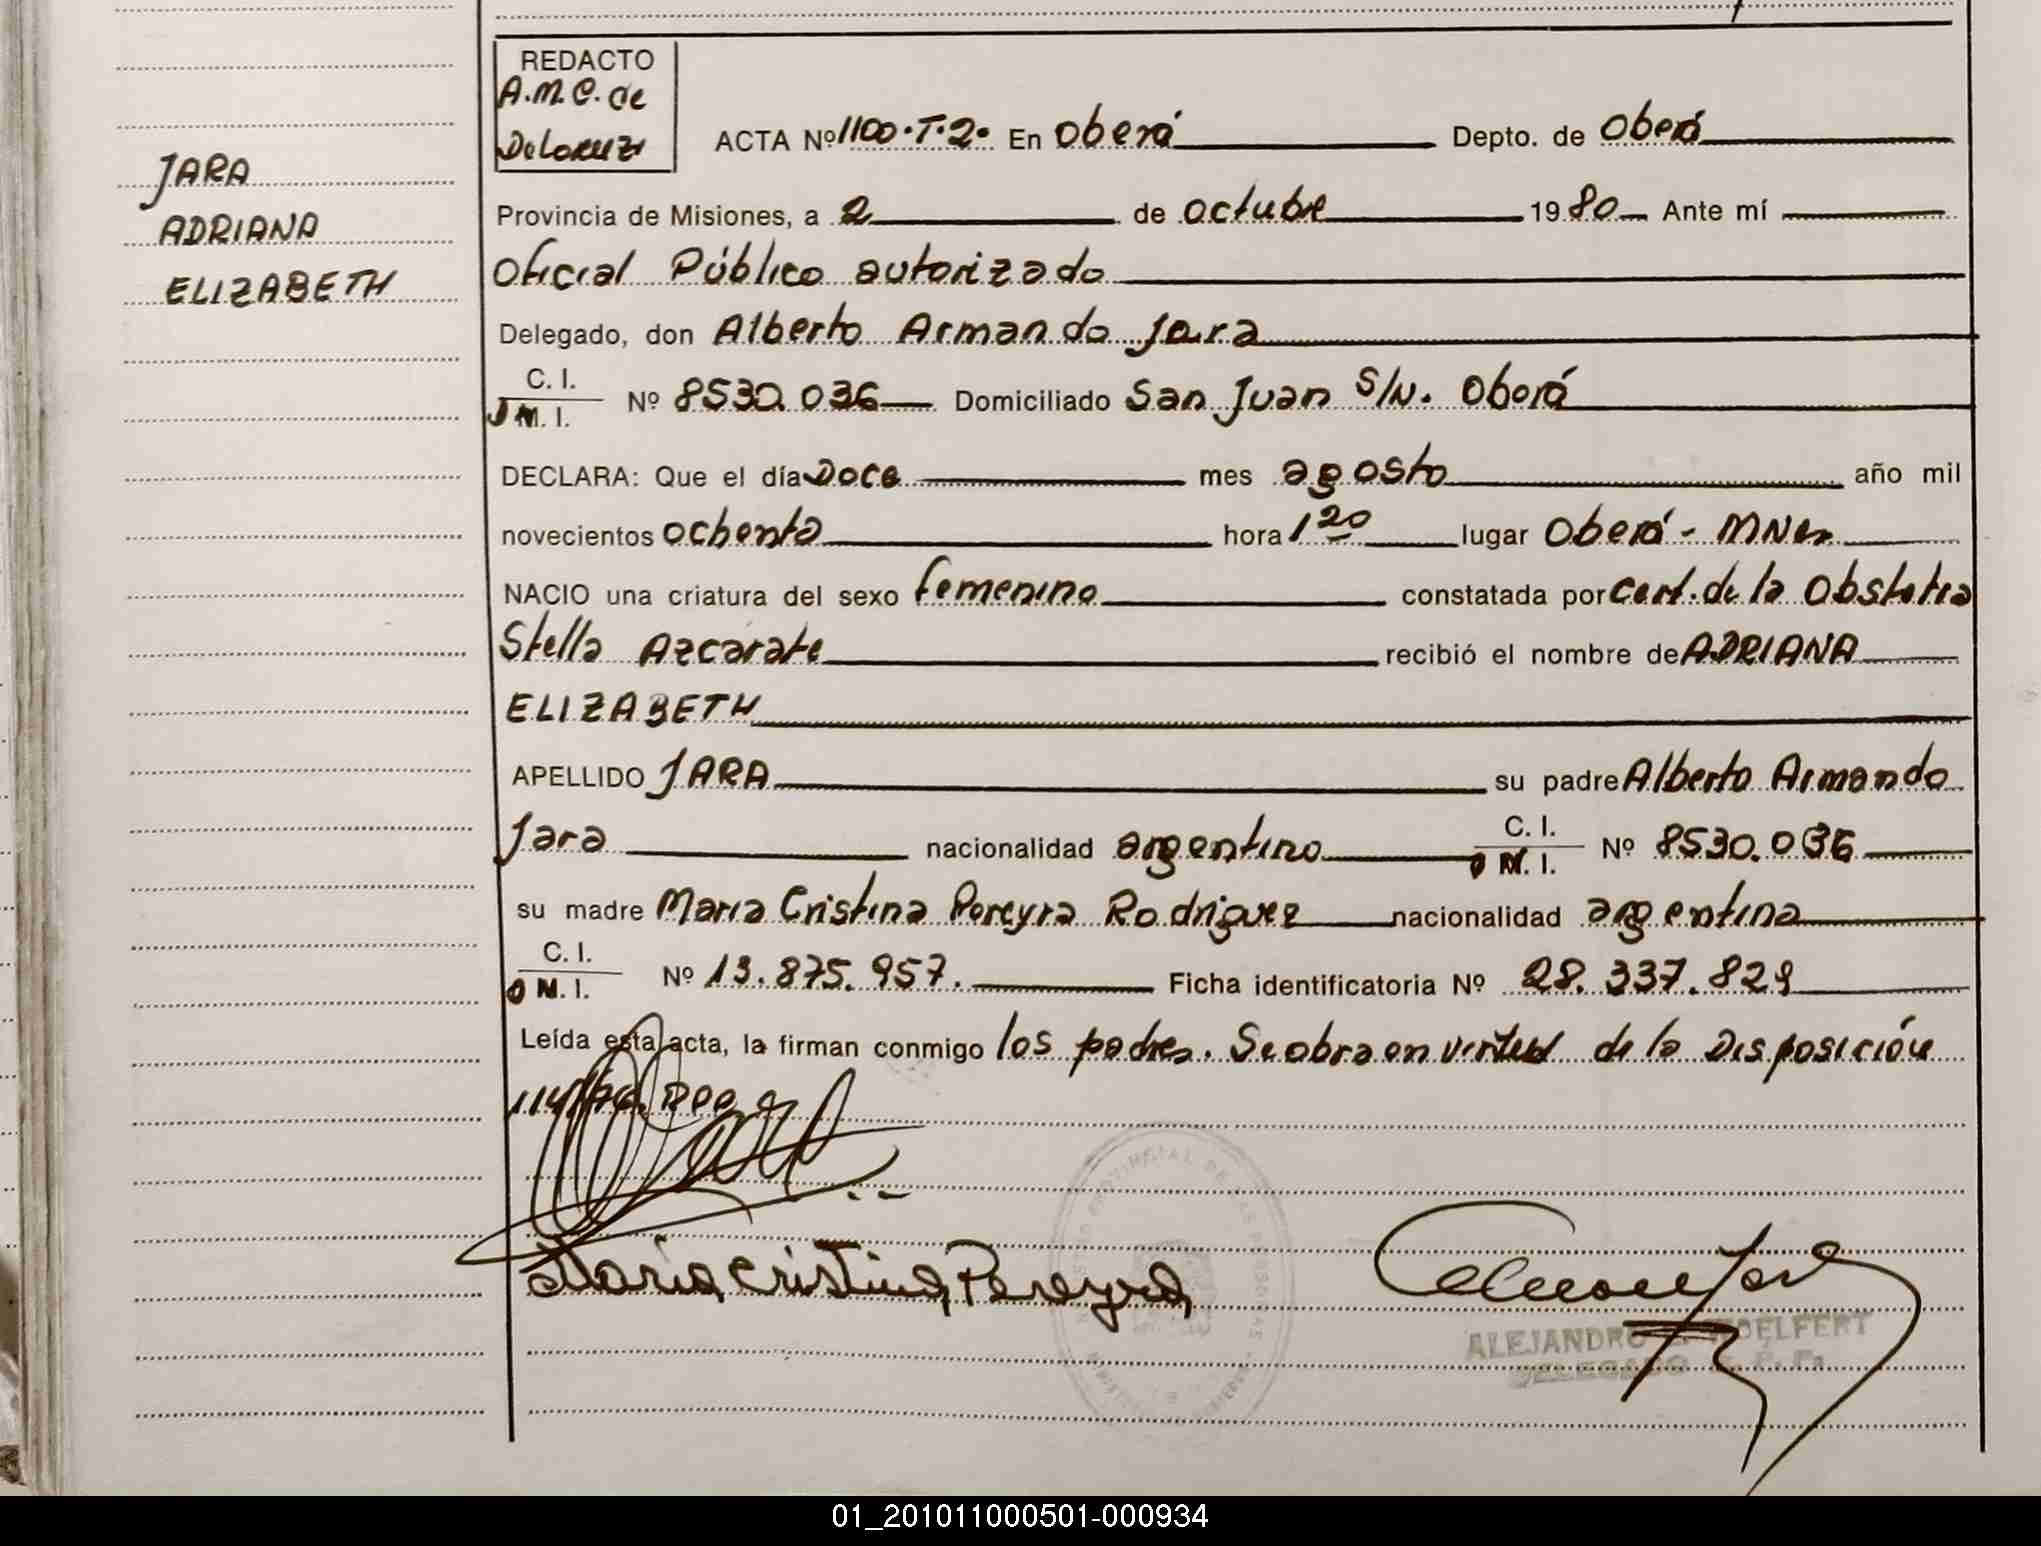 REDACTO
A.M.C. de
DeLoruzi
ACTA Nº 1100.T.2º En Oberá Depto. de Oberá
JARA
ADRIANA
ELIZABETH
Provincia de Misiones, a 2 de octubre 1980 Ante mí
Oficial Público autorizado
Delegado, don Alberto Armando Jara
C. I.
M. I. Nº 8530.036 Domiciliado San Juan S/N. Oberá
DECLARA: Que el día Doce mes agosto año mil
novecientos ochenta hora 1 20 lugar Oberá - MNes
NACIO una criatura del sexo femenino constatada por Cert. de la Obstetra
Stella Azcarate recibió el nombre de ADRIANA
ELIZABETH
APELLIDO JARA su padre Alberto Armando
Jara nacionalidad argentino C. I.
M. I. Nº 8530.036
su madre Maria Cristina Pereyra Rodriguez nacionalidad argentina
C. I.
M. I. Nº 13.875.957. Ficha identificatoria Nº 28.337.829
Leída esta acta, la firman conmigo los padres. Se obra en virtud de la Disposición
Maria Cristina Pereyra
ALEJANDRO WOELFERT
DELEGADO
01_201011000501-000934